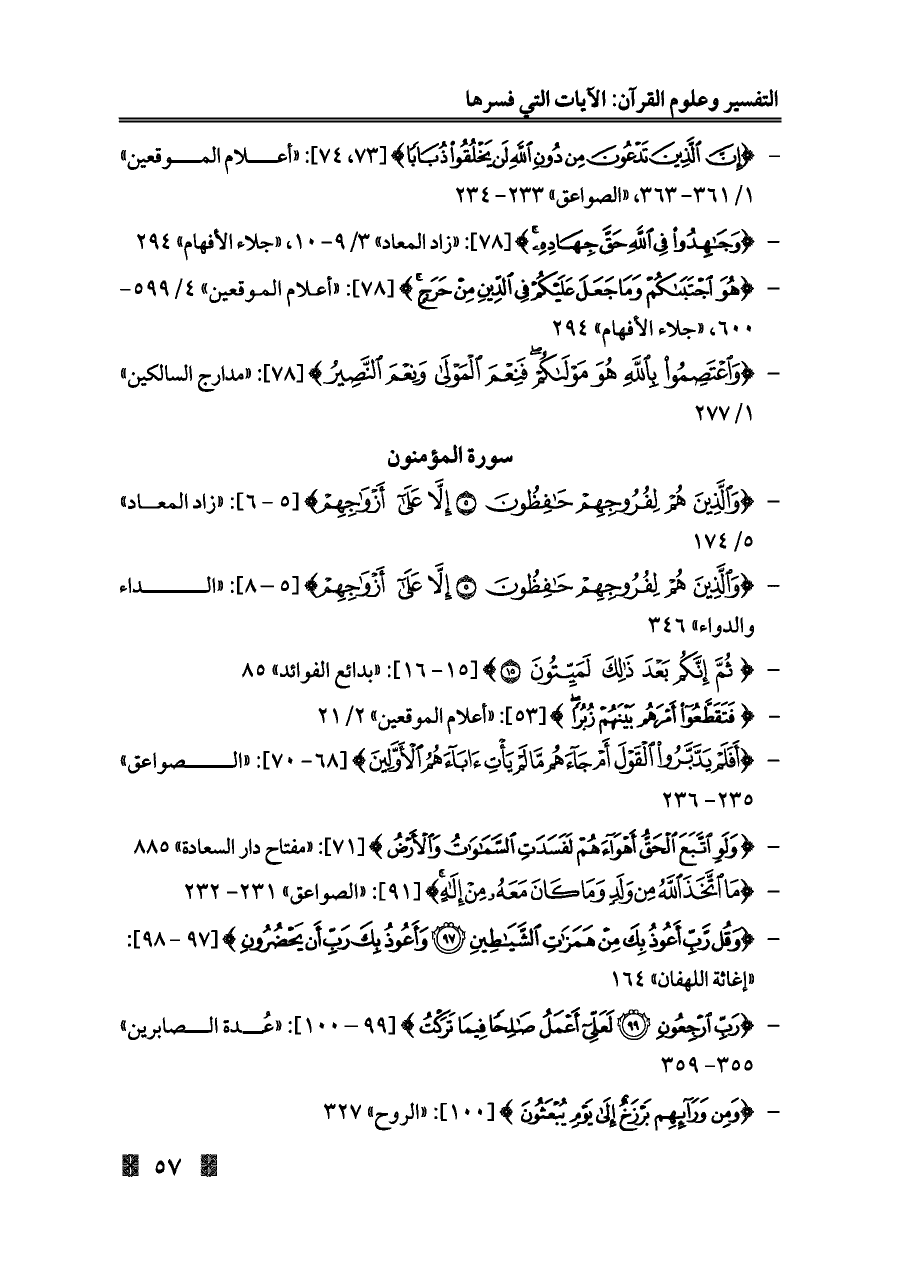 التفسير وعلوم القرآن: الآيات التي فسرها
- ﴿إِنَّ ٱلَّذِينَ تَدْعُونَ مِن دُونِ ٱللَّهِ لَن يَخْلُقُوا۟ ذُبَابًا﴾ [٧٣، ٧٤]: «أعـلام المـوقعين»
١/ ٣٦١- ٣٦٣، «الصواعق» ٢٣٣- ٢٣٤
- ﴿وَجَـٰهِدُوا۟ فِى ٱللَّهِ حَقَّ جِهَادِهِۦ ۚ﴾ [٧٨]: «زاد المعاد» ٣/ ٩- ١٠، «جلاء الأفهام» ٢٩٤
- ﴿هُوَ ٱجْتَبَىٰكُمْ وَمَا جَعَلَ عَلَيْكُمْ فِى ٱلدِّينِ مِنْ حَرَجٍ ۚ﴾ [٧٨]: «أعلام الموقعين» ٤/ ٥٩٩-
٦٠٠، «جلاء الأفهام» ٢٩٤
- ﴿وَٱعْتَصِمُوا۟ بِٱللَّهِ هُوَ مَوْلَىٰكُمْ ۖ فَنِعْمَ ٱلْمَوْلَىٰ وَنِعْمَ ٱلنَّصِيرُ﴾ [٧٨]: «مدارج السالكين»
١/ ٢٧٧
سورة المؤمنون
- ﴿وَٱلَّذِينَ هُمْ لِفُرُوجِهِمْ حَـٰفِظُونَ ۝٥ إِلَّا عَلَىٰٓ أَزْوَٰجِهِمْ﴾ [٥ - ٦]: «زاد المعـاد»
٥/ ١٧٤
- ﴿وَٱلَّذِينَ هُمْ لِفُرُوجِهِمْ حَـٰفِظُونَ ۝٥ إِلَّا عَلَىٰٓ أَزْوَٰجِهِمْ﴾ [٥ - ٨]: «الـــداء
والدواء» ٣٤٦
- ﴿ثُمَّ إِنَّكُم بَعْدَ ذَٰلِكَ لَمَيِّتُونَ ۝١٥﴾ [١٥- ١٦]: «بدائع الفوائد» ٨٥
- ﴿فَتَقَطَّعُوٓا۟ أَمْرَهُم بَيْنَهُمْ زُبُرًا ۖ﴾ [٥٣]: «أعلام الموقعين» ٢/ ٢١
- ﴿أَفَلَمْ يَدَّبَّرُوا۟ ٱلْقَوْلَ أَمْ جَآءَهُم مَّا لَمْ يَأْتِ ءَابَآءَهُمُ ٱلْأَوَّلِينَ﴾ [٦٨- ٧٠]: «الـــصواعق»
٢٣٥- ٢٣٦
- ﴿وَلَوِ ٱتَّبَعَ ٱلْحَقُّ أَهْوَآءَهُمْ لَفَسَدَتِ ٱلسَّمَـٰوَٰتُ وَٱلْأَرْضُ﴾ [٧١]: «مفتاح دار السعادة» ٨٨٥
- ﴿مَا ٱتَّخَذَ ٱللَّهُ مِن وَلَدٍ وَمَا كَانَ مَعَهُۥ مِنْ إِلَـٰهٍ ۚ﴾ [٩١]: «الصواعق» ٢٣١- ٢٣٢
- ﴿وَقُل رَّبِّ أَعُوذُ بِكَ مِنْ هَمَزَٰتِ ٱلشَّيَـٰطِينِ ۝٩٧ وَأَعُوذُ بِكَ رَبِّ أَن يَحْضُرُونِ﴾ [٩٧ - ٩٨]:
«إغاثة اللهفان» ١٦٤
- ﴿رَبِّ ٱرْجِعُونِ ۝٩٩ لَعَلِّىٓ أَعْمَلُ صَـٰلِحًا فِيمَا تَرَكْتُ﴾ [٩٩ - ١٠٠]: «عُـدة الـصابرين»
٣٥٥- ٣٥٩
- ﴿وَمِن وَرَآئِهِم بَرْزَخٌ إِلَىٰ يَوْمِ يُبْعَثُونَ﴾ [١٠٠]: «الروح» ٣٢٧
٥٧